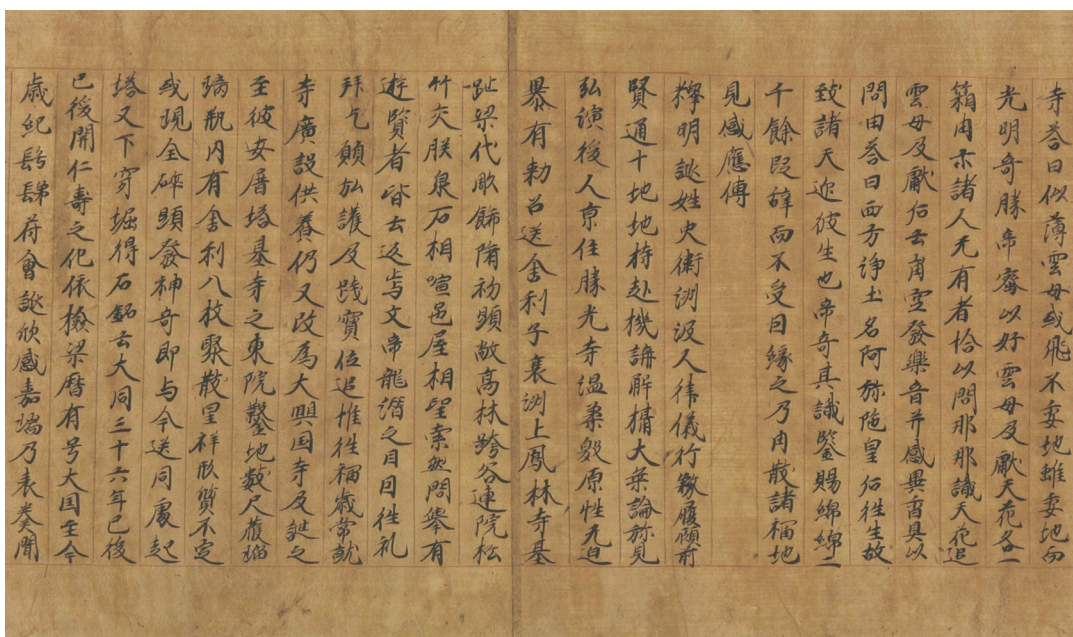 寺荅曰似薄雲母或飛不委地雖委地而
光明奇勝帝密以好雲母及獻天花各一
箱用示諸人无有者恰以問那那識天花追
雲母及獻后云崩空發樂音并感異香具以
問由荅曰西方淨土名阿弥陁皇后往生故
致諸天迎彼生也帝奇其識鑒賜綿綿二
千餘段辞而不受因緣之乃用散諸福地
見感應傳
釋明誕姓史衛洲汲人律儀行務履傾前
賢通十地地持赴機講解攝大乘論弥見
弘演後人京住勝光寺温柔毅原性无迫
暴有勅召送舍利于襄洲上鳳林寺基
趾梁代彫飾隋初顯敞高林跨谷連院松
竹交映泉石相喧邑屋相望索然閑舉有
遊賢者皆去返焉文帝龍潛之日因往礼
拜乞願弘護及踐寶位追惟往福歲常就
寺廣設供養仍又改為大興国寺及誕之
至彼安厝塔基寺之東院鑿地數尺獲瑠
璃瓶内有舍利八枚聚散呈祥形質不定
或現全碎顯發神奇即与今送同處起
塔又下穿掘得石銘云大同三十六年已後
已後開仁壽之化依撿梁曆有号大国至今
歲紀髣髴符會誕欣感嘉瑞乃表奏聞